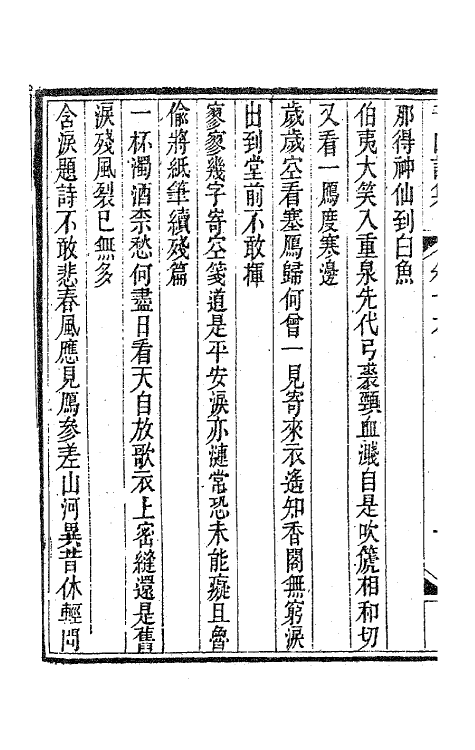 那得神仙到白魚
伯夷大笑入重泉先代弓裘頸血濺自是吹篪相和切
又看一鴈度寒邊
歲歲空看塞鴈歸何曾一見寄來衣遙知香閣無窮淚
出到堂前不敢揮
寥寥幾字寄空箋道是平安淚亦漣常恐未能癡且魯
偷將紙筆續殘篇
一杯濁酒柰愁何盡日看天自放歌衣上密縫還是舊
淚殘風裂已無多
含淚題詩不敢悲春風應見鴈參差山河異昔休輕問